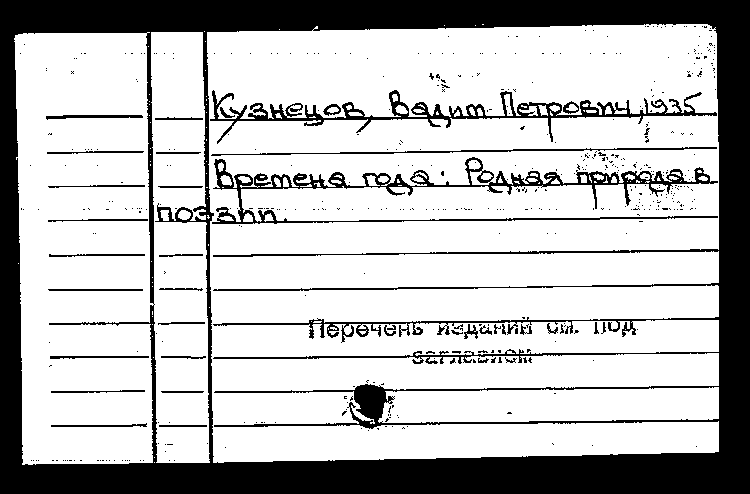 Кузнецов, Вадим Петрович, 1935
Времена года: Родная природа в
поэзии.
Перечень изданий см. под
заглавием